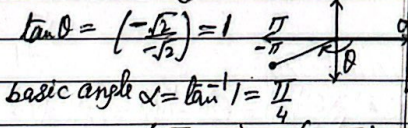 tanθ = (-√2/-√2) = 1
π
-π
0
θ
basic angle α = tan⁻¹ 1 = π/4